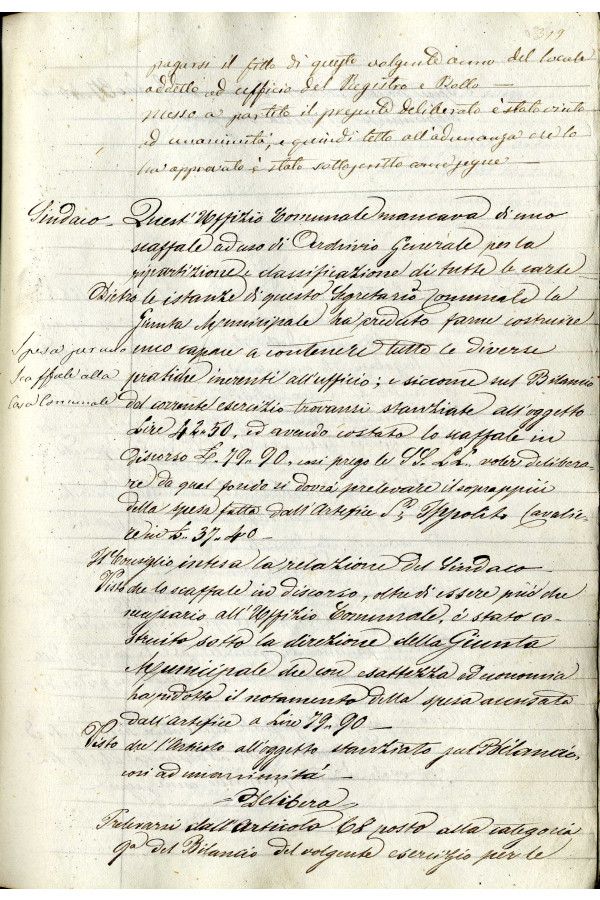 319
pagarsi il fitto di questo volgente anno del locale
addetto ad ufficio del Registro e Bollo —
Messo a partito il presente deliberato è stato vinto
ad unanimità, e quindi letto all'adunanza che lo
ha approvato è stato sottoscritto come segue —
Sindaco — Quest'Uffizio Comunale mancava di uno
scaffale ad uso di Archivio Generale per la
ripartizione e classificazione di tutte le carte
Dietro le istanze di questo Segretario Comunale la
Giunta Municipale ha creduto farne costruire
Spesa per uno
Scaffale alla
Casa Comunale
uno capace a contenere tutte le diverse
pratiche inerenti all'ufficio; e siccome sul Bilancio
del corrente esercizio trovansi stanziate all'oggetto
Lire 42.50, ed avendo costato lo scaffale in
discorso L. 79.90, così prego le SS. LL. voler delibera-
re da qual fondo si dovrà prelevare il soprappiù
della spesa fatta dall'Artefice Sr. Ippolito Cavalie-
re in L. 37.40 —
Il Consiglio intesa la relazione del Sindaco —
Visto che lo scaffale in discorso, oltre di essere più che
necessario all'Uffizio Comunale, è stato co-
struito sotto la direzione della Giunta
Municipale che con esattezza ed economia
ha ridotto il notamento della spesa avanzata
dall'artefice a Lire 79.90 —
Visto che l'Articolo all'oggetto stanziato sul Bilancio,
così ad unanimità —
Delibera
Prelevarsi dall'Articolo 68 posto alla categoria
9a del Bilancio del volgente esercizio per le